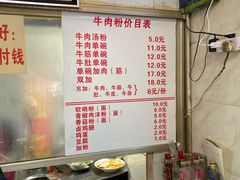 好：
付钱
牛肉粉价目表
牛肉汤粉 5.0元
牛肉单碗 11.0元
牛筋单碗 12.0元
牛肚单碗 12.0元
单碗加肉（筋） 17.0元
双加 18.0元
另加：牛肉、牛筋、牛肚、牛皮、牛杂 6元/份
软哨粉（面） 10.0元
青椒肉沫粉（面） 9.0元
香菇粉（面） 9.0元
卤鸡腿
鸡蛋
豆腐
加粉